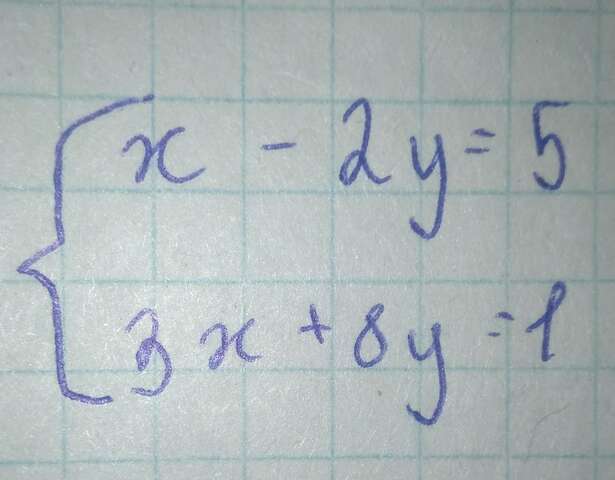 x - 2y = 5
3x + 8y = 1